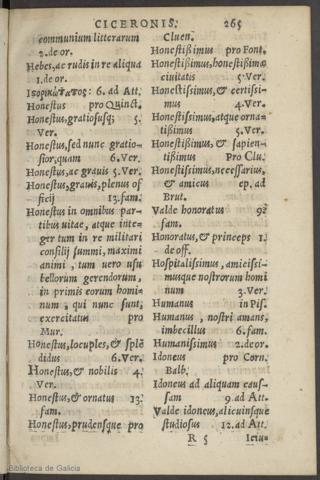 CICERONIS. 265
communium litterarum
2. de or.
Hebes, ac rudis in re aliqua
1. de or.
Ισοκράτατος: 6. ad Att.
Honestus pro Quinct.
Honestus, gratiosusq; 5.
Ver.
Honestus, sed nunc gratio-
sior, quam 6. Ver.
Honestus, ac gravis 5. Ver.
Honestus, gravis, plenus of
ficij 13. fam.
Honestus in omnibus par-
tibus vitae, atque inte-
ger tum in re militari
consilij summi, maximi
animi, tum vero usu
bellorum gerendorum,
in primis eorum homi-
num, qui nunc sunt,
exercitatus pro
Mur.
Honestus, locuples, & splē
didus 6. Ver.
Honestus, & nobilis 4.
Ver.
Honestus, & ornatus 13.
fam.
Honestus, prudensque pro
Cluen.
Honestißimus pro Font.
Honestißimus, honestißimæ
civitatis 5. Ver.
Honestissimus, & certissi-
mus 4. Ver.
Honestissimus, atque orna-
tißimus 5. Ver.
Honestißimus, & sapien-
tißimus Pro Clu.
Honestissimus, necessarius,
& amicus ep. ad
Brut.
Valde honoratus 9.
fam.
Honoratus, & princeps 1.
de off.
Hospitalissimus, amicissi-
musque nostrorum homi
num 3. Ver.
Humanus in Pis.
Humanus, nostri amans,
imbecillus 6. fam.
Humanissimus 2. de or.
Idoneus pro Corn.
Balb.
Idoneus ad aliquam caus-
sam 9. ad Att.
Valde idoneus, alicuiusque
studiosus 12. ad Att.
R 5 Ictus
Biblioteca de Galicia